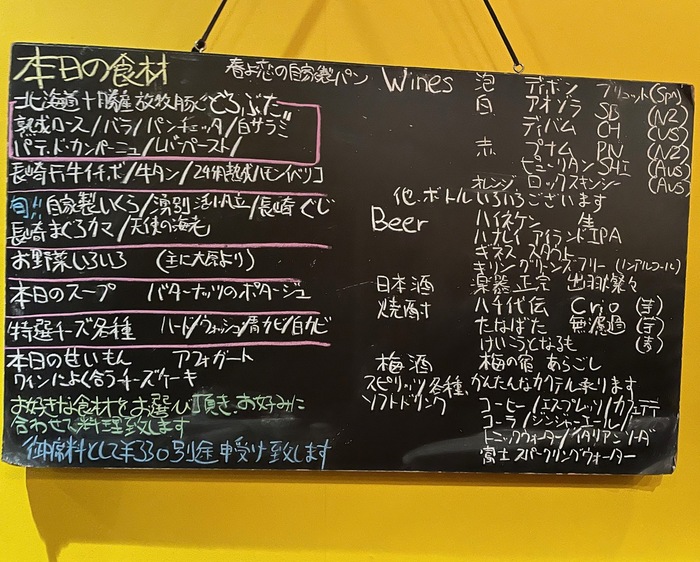 本日の食材
春よ恋の自家製パン
北海道十勝産放牧豚どろぶた
熟成ロース/バラ/パンチェッタ/白サラミ
パテ・ド・カンパーニュ/レバーペースト/
長崎F1牛イチボ/牛タン/24ヶ月熟成ハモンイベリコ
旬!! 自家製いくら/湧別活ホタテ/長崎くじ
長崎まぐろカマ/天使の海老
お野菜いろいろ (主に大原より)
本日のスープ バターナッツのポタージュ
特選チーズ各種 ハード/ウォッシュ/青カビ/白カビ
本日のせいもん アフォガート
ワインによく合うチーズケーキ
お好きな食材をお選び頂き、お好みに
合わせて料理致します
御席料として¥330別途申受け致します
Wines 泡 ディボン ブリュット(Spn)
白 アオゾラ SB (NZ)
ディバム CH (US)
赤 プナム PN (NZ)
ヒュータン SHI (Aus)
オレンジ ロックスキンシー (Aus)
他、ボトルいろいろございます
Beer ハイネケン 生
ハナレイ アイランドIPA
ギネス スタウト
キリングリーンズフリー (ノンアルコール)
日本酒 楽器正宗 出羽燦々
焼酎 八千代伝 Crio (芋)
たなばた 無濾過 (芋)
けいこうとなるも (麦)
梅酒 梅の宿 あらごし
スピリッツ各種、かんたんなカクテル承ります
ソフトドリンク コーヒー/エスプレッソ/カフェラテ
コーラ/ジンジャーエール/
トニックウォーター/イタリアンソーダ
富士スパークリングウォーター